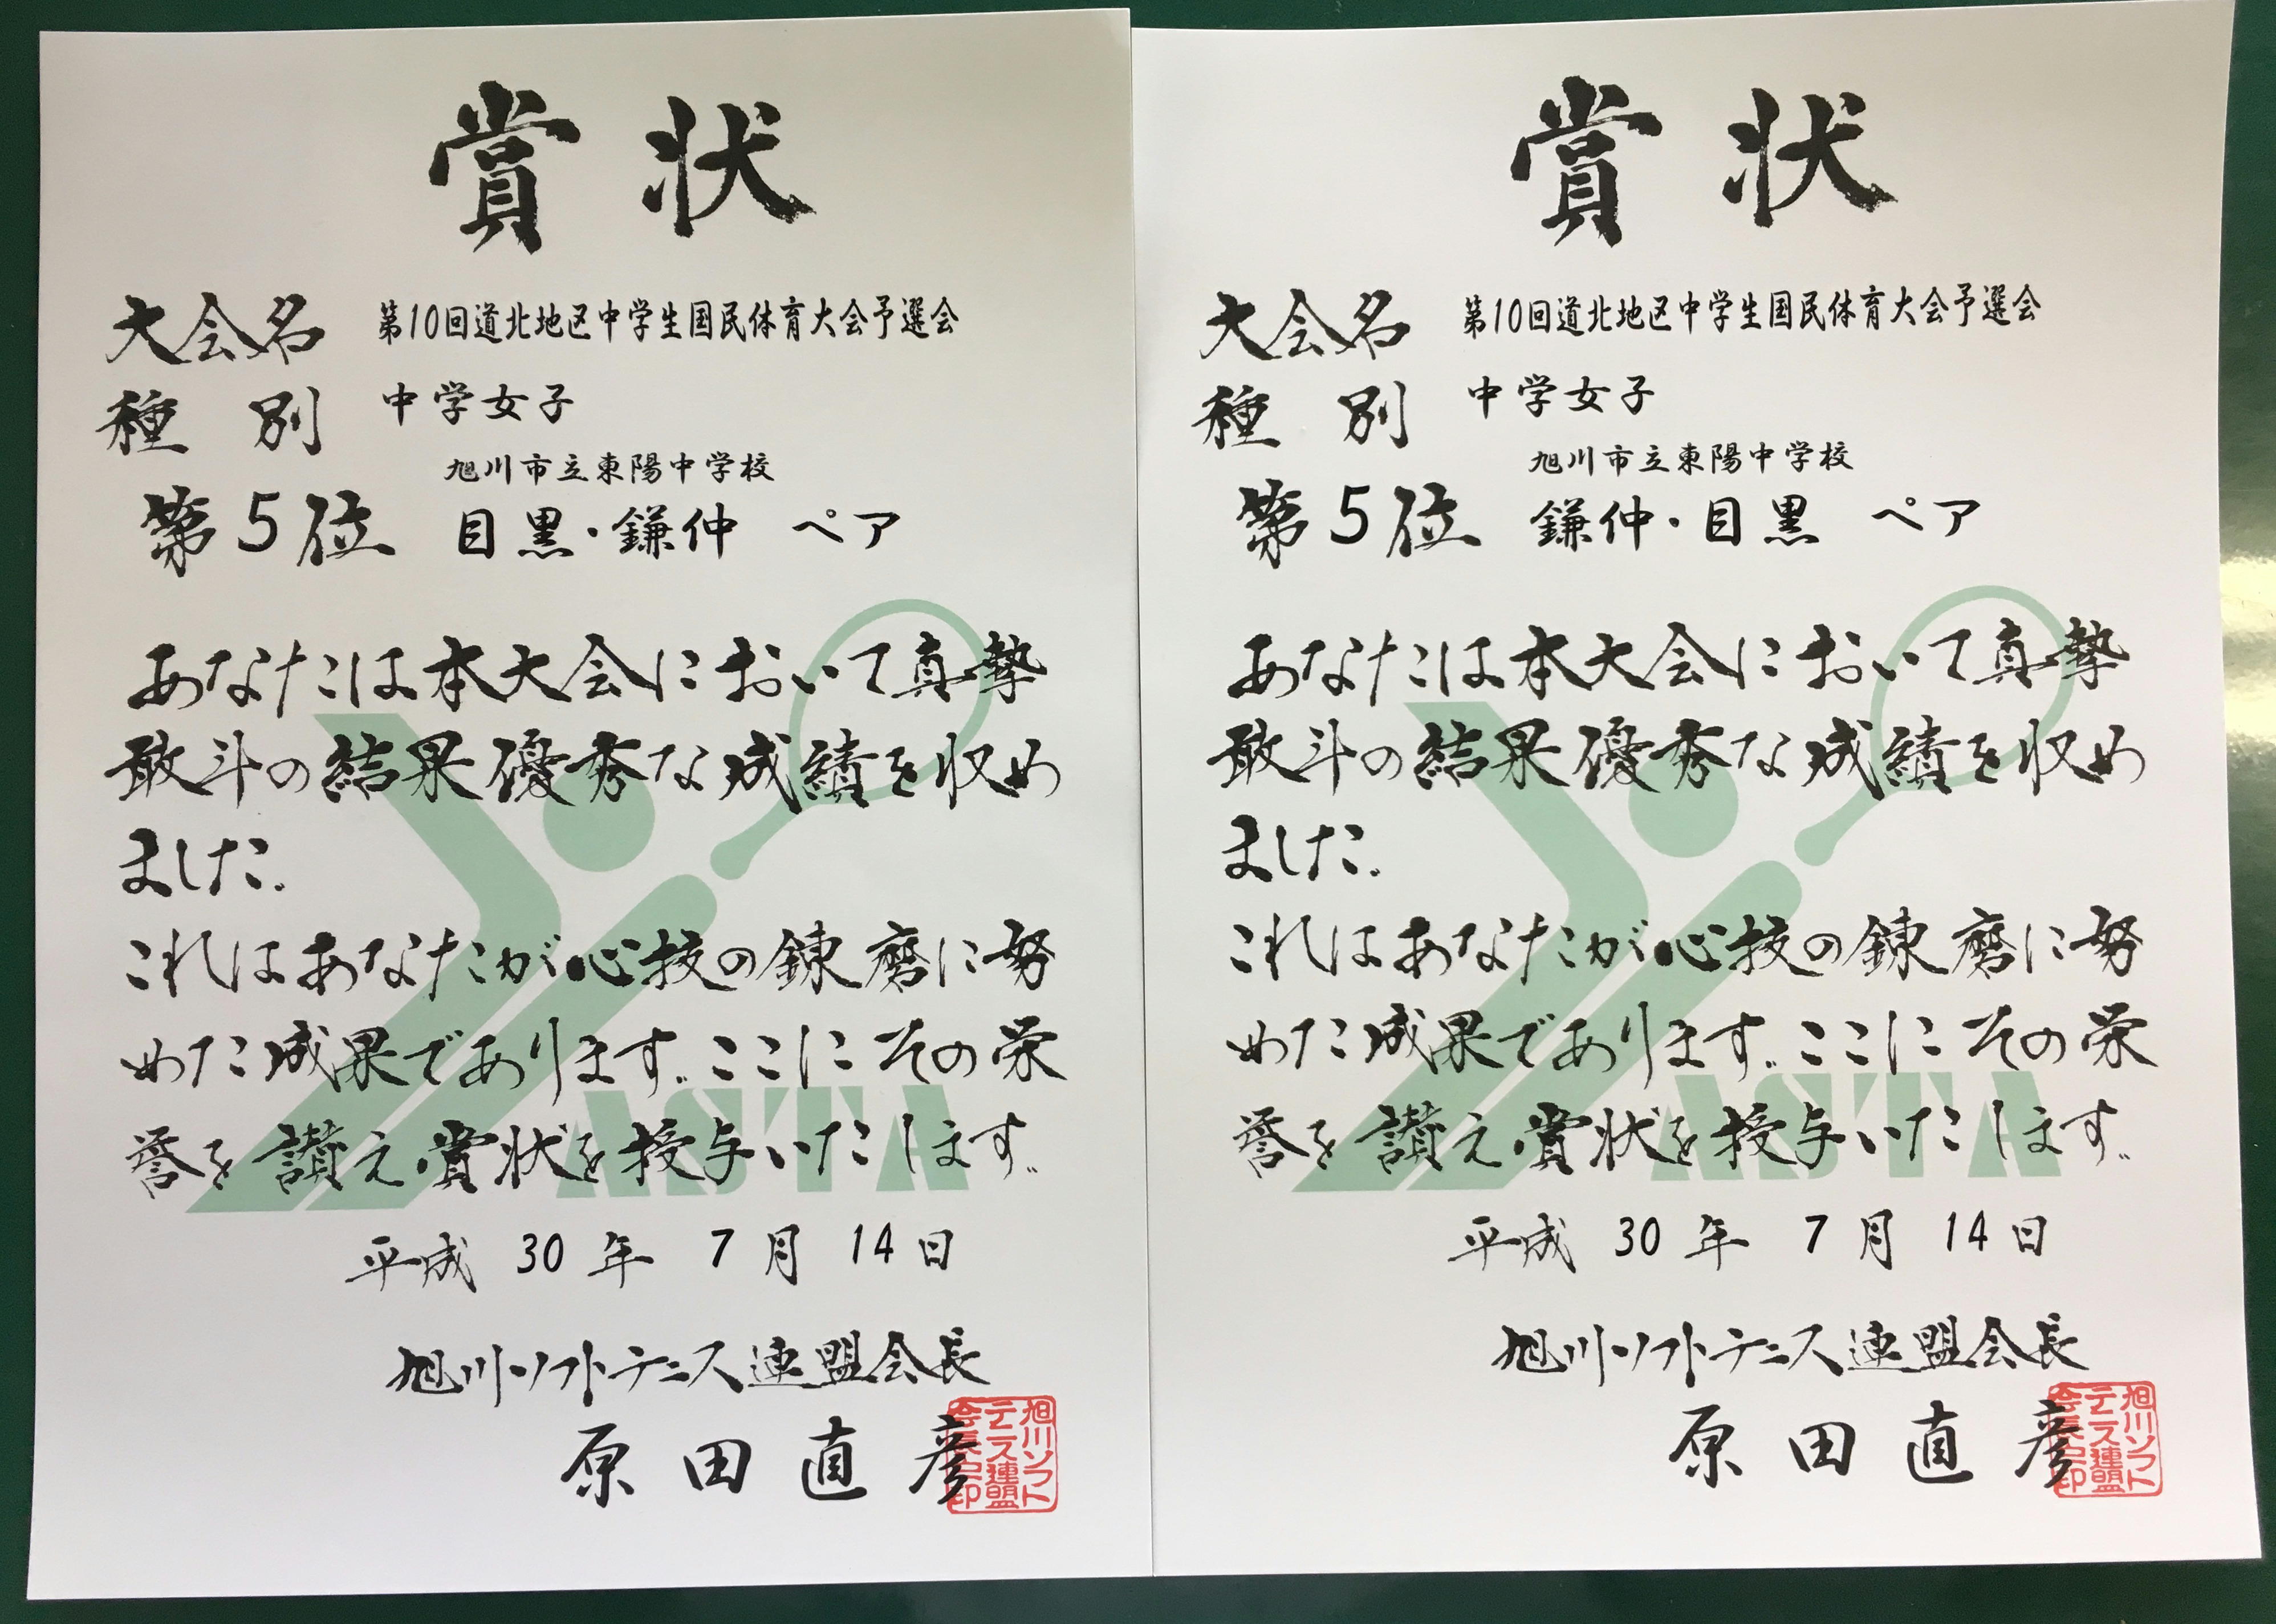 賞状
大会名 第10回道北地区中学生国民体育大会予選会
種別 中学女子
旭川市立東陽中学校
第5位 目黒・鎌仲 ペア
あなたは本大会において真摯
敢斗の結果優秀な成績を収め
ました。
これはあなたが心技の錬磨に努
めた成果であります。ここにその栄
誉を讃え賞状を授与いたします。
ASTA
平成 30 年 7 月 14 日
旭川ソフトテニス連盟会長
原田直彦
旭川ソフト
テニス連盟
会長之印
賞状
大会名 第10回道北地区中学生国民体育大会予選会
種別 中学女子
旭川市立東陽中学校
第5位 鎌仲・目黒 ペア
あなたは本大会において真摯
敢斗の結果優秀な成績を収め
ました。
これはあなたが心技の錬磨に努
めた成果であります。ここにその栄
誉を讃え賞状を授与いたします。
ASTA
平成 30 年 7 月 14 日
旭川ソフトテニス連盟会長
原田直彦
旭川ソフト
テニス連盟
会長之印